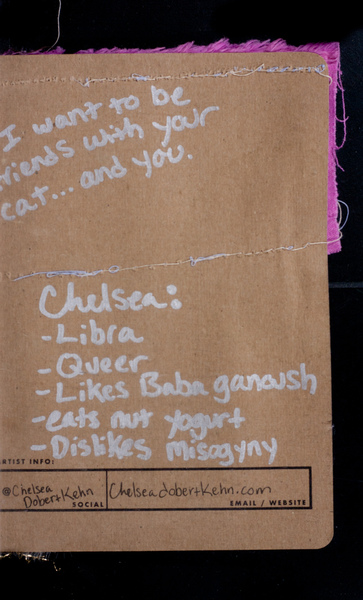 I want to be
riends with your
cat... and you.
Chelsea:
- Libra
- Queer
- Likes Baba ganoush
- eats nut yogurt
- Dislikes misogyny
RTIST INFO:
@Chelsea
DobertKehn
SOCIAL
Chelseadobertkehn.com
EMAIL / WEBSITE